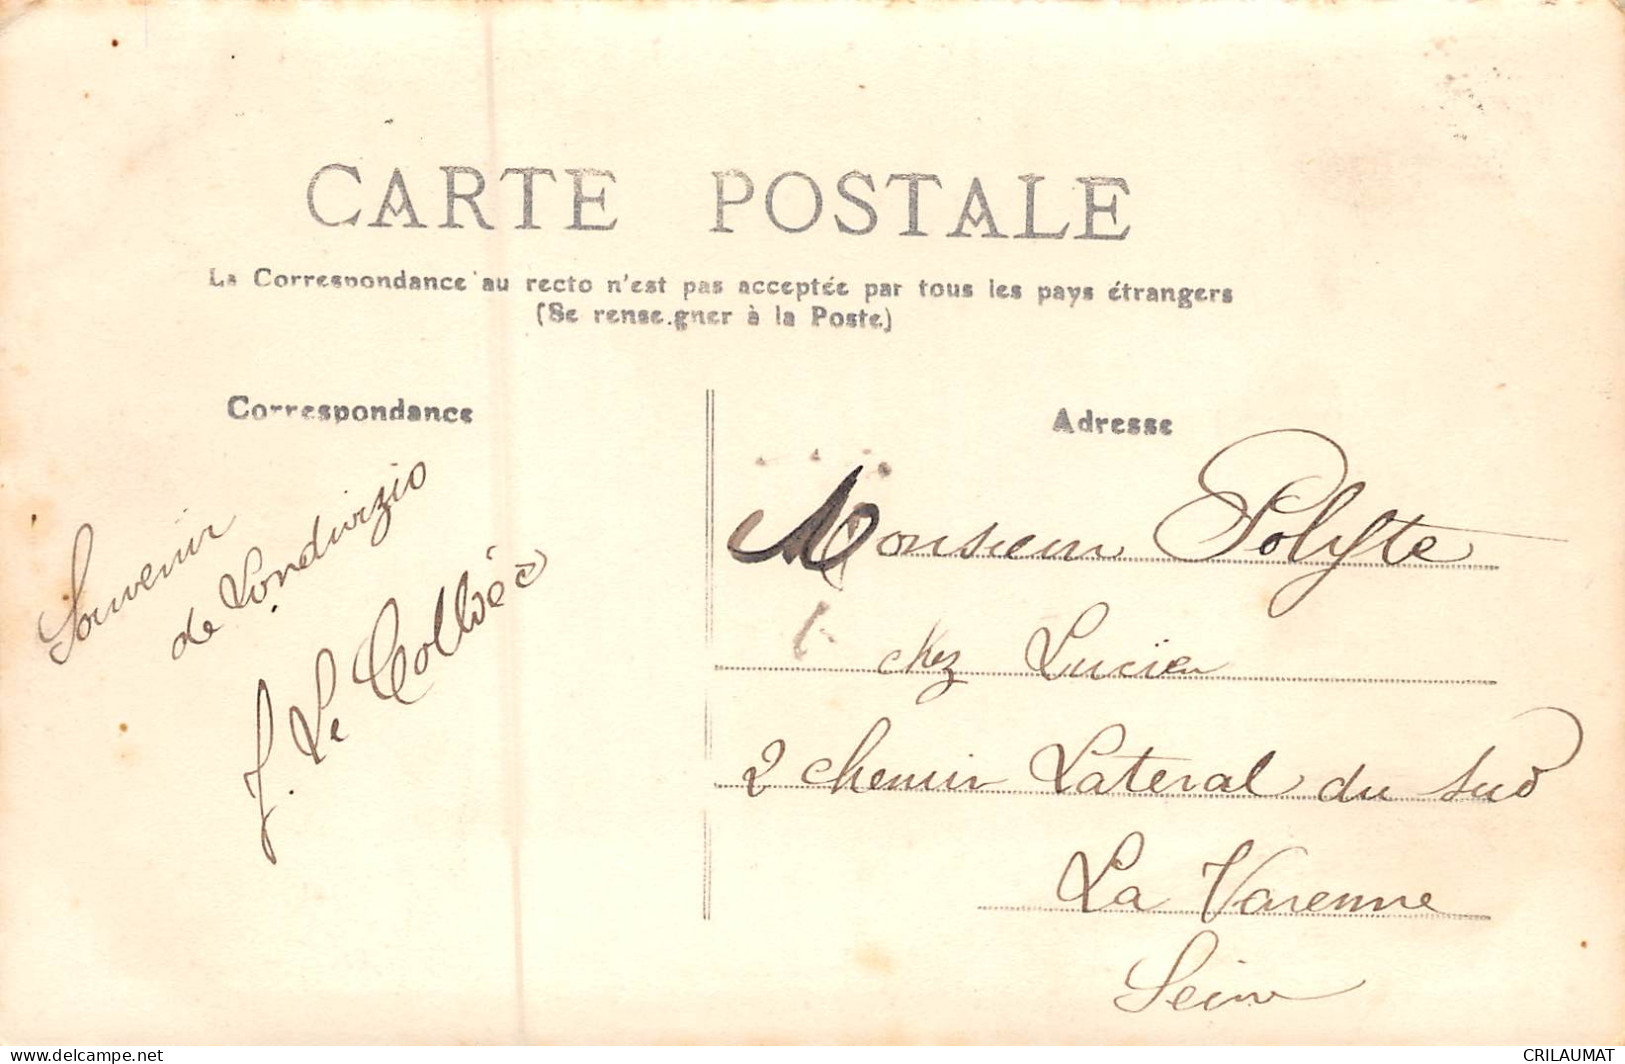 CARTE POSTALE
La Correspondance au recto n'est pas acceptée par tous les pays étrangers
(Se renseigner à la Poste)
Correspondance
Souvenir
de Londinizio
J. Le
Adresse
Monsieur Polyte
chez Lucien
2 chemin Lateral du Sud
La Varenne
Seine
www.delcampe.net
CRILAUMAT